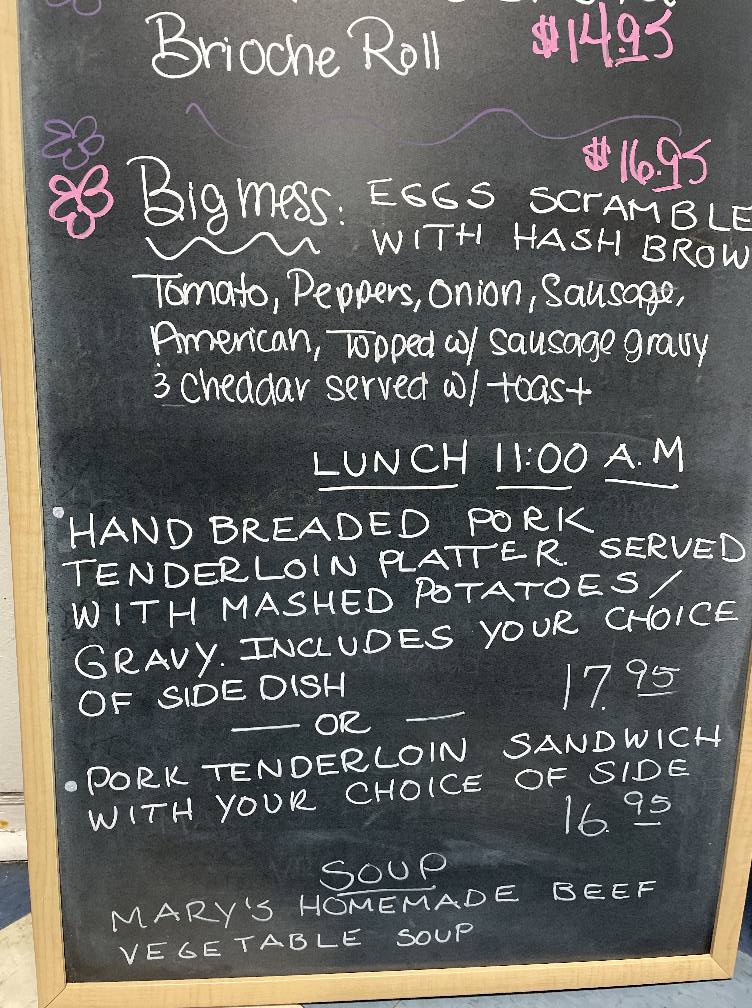 Brioche Roll $14.95
$16.95
Big mess: EGGS SCRAMBLE
WITH HASH BROW
Tomato, Peppers, Onion, Sausage,
American, Topped w/ sausage gravy
& Cheddar served w/ toast
LUNCH 11:00 A.M
• HAND BREADED PORK
TENDERLOIN PLATTER. SERVED
WITH MASHED POTATOES/
GRAVY. INCLUDES YOUR CHOICE
OF SIDE DISH 17.95
— OR —
• PORK TENDERLOIN SANDWICH
WITH YOUR CHOICE OF SIDE
16.95
SOUP
MARY'S HOMEMADE BEEF
VEGETABLE SOUP